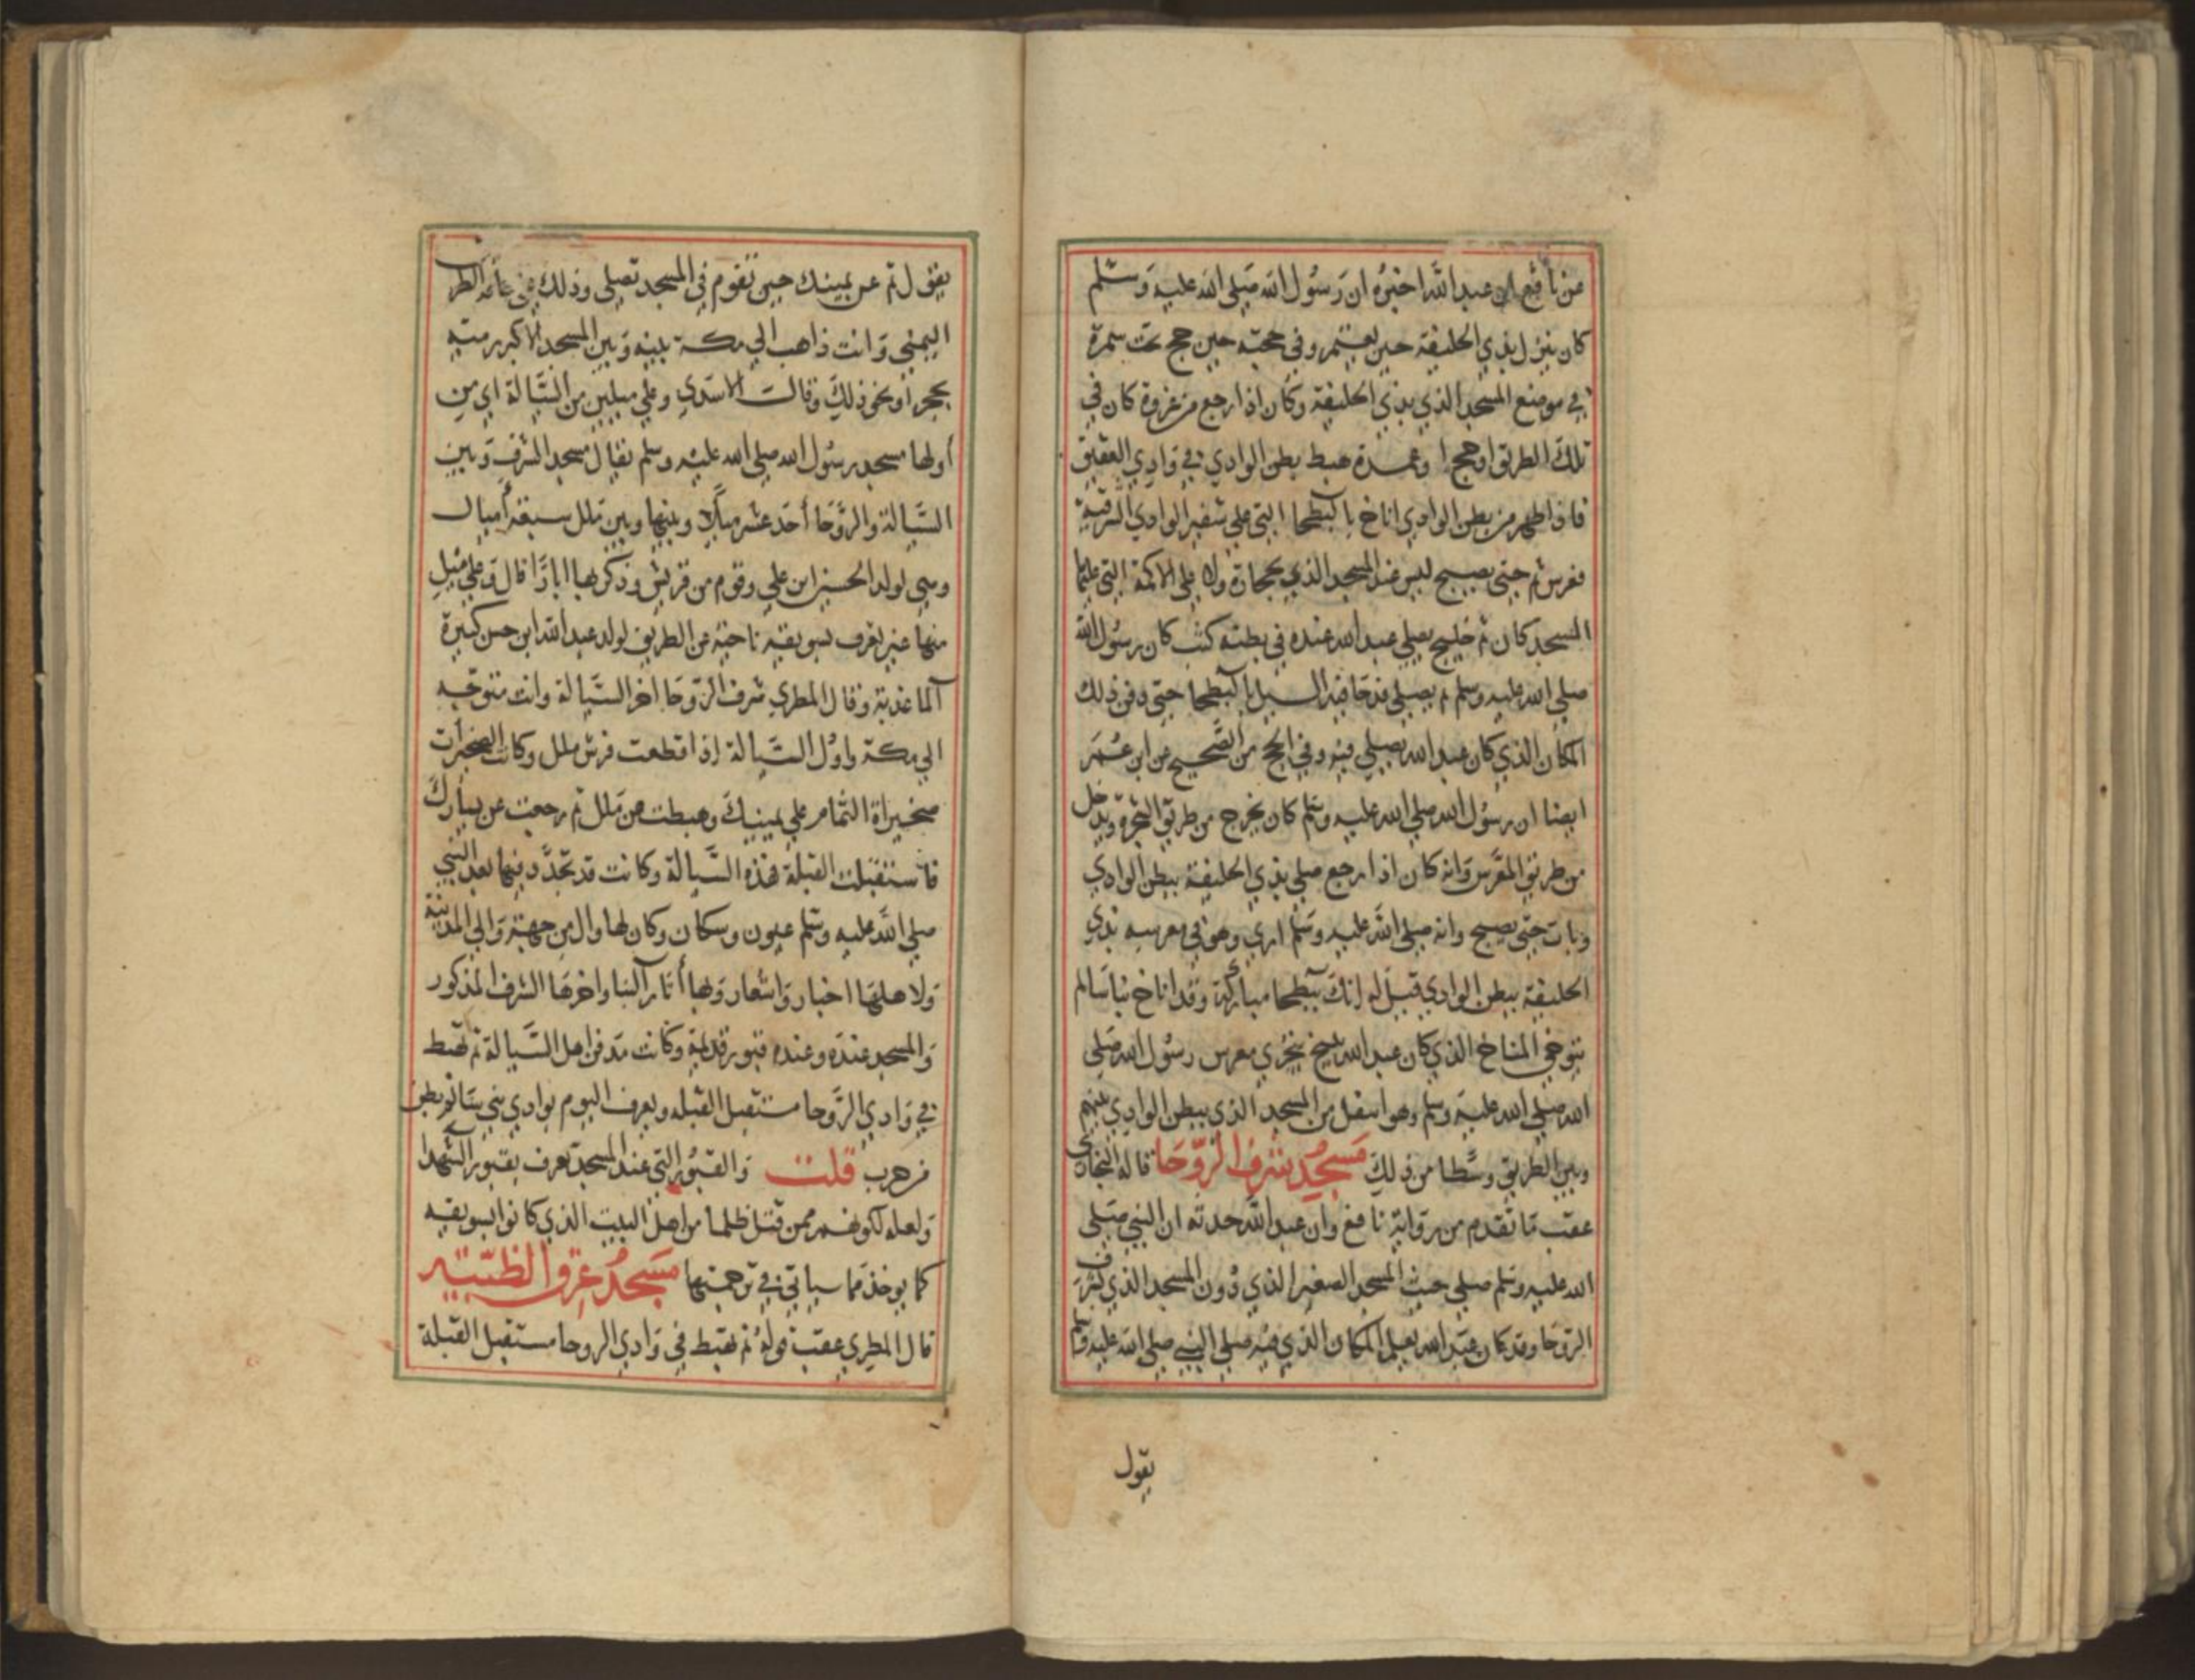 عن نافع ان عبد الله اخبره ان رسول الله صلي الله عليه وسلم
كان ينزل بذي الحليفة حين يعتمر وفي حجته حين حج تحت سمرة
في موضع المسجد الذي بذي الحليفة وكان اذا رجع من غزوة كان في
تلك الطريق او حج او عمرة هبط بطن الوادي في وادي العقيق
فاذا ظهر من بطن الوادي اناخ بالبطحا التي علي شفير الوادي الشرقية
فعرس ثم حتي يصبح ليس عند المسجد الذي بحجارة ولا علي الاكمة التي عليها
المسجد كان ثم خليج يصلي عبد الله عنده في بطنه كثب كان رسول الله
صلي الله عليه وسلم ثم يصلي فدحا فيه السيل بالبطحا حتي دفن ذلك
المكان الذي كان عبد الله يصلي فيه وفي الحج من الصحيح عن ابن عمر
ايضا ان رسول الله صلي الله عليه وسلم كان يخرج من طريق الشجرة ويدخل
من طريق المعرس وانه كان اذا رجع صلي بذي الحليفة ببطن الوادي
وبات حتي يصبح وانه صلي الله عليه وسلم اري وهو في معرسه بذي
الحليفة ببطن الوادي قيل له انك ببطحا مباركة وقد اناخ بنا سالم
يتوخي المناخ الذي كان عبد الله ينيخ يتحري معرس رسول الله صلي
الله صلي الله عليه وسلم وهو اسفل من المسجد الذي ببطن الوادي بينهم
وبين الطريق وسطا من ذلك مسجد بشرف الروحا قاله البخاري
عقب ما تقدم من رواية نافع وان عبد الله حدثه ان النبي صلي
الله عليه وسلم صلي حيث المسجد الصغير الذي دون المسجد الذي بشرف
الروحا وقد كان عبد الله يعلم المكان الذي فيه صلي النبي صلي الله عليه وسلم
يقول
يقول ثم عن يمينك حين تقوم في المسجد تصلي وذلك علي حافة الطريق
اليمني وانت ذاهب الي مكة بينه وبين المسجد الاكبر رمية
بحجر او نحو ذلك وقالت الاسدي وعلي ميلين من السيالة اي من
اولها مسجد رسول الله صلي الله عليه وسلم يقال مسجد الشرف وبين
السيالة والروحا أحد عشر ميلا وبينها وبين ملل سبعة أميال
وهي لولد الحسين ابن علي وقوم من قريش وذكر بها ابارا قال وعلي ميل
منها عين تعرف بسويقه ناحية عن الطريق لولد عبد الله ابن حسن كبيرة
الما عذبة وقال المطري شرف الروحا اخر السيالة وانت متوجه
الي مكة واول السيالة اذا قطعت فرش ملل وكانت الصخيرات
صخيراة الثمام علي يمينك وهبطت من ملل ثم رجعت عن يسارك
فاستقبلت القبلة فهذه السيالة وكانت قد تجدد فيها بعد النبي
صلي الله عليه وسلم عيون وسكان وكان لها وال من جهة والي المدينة
ولاهلها اخبار واشعار وبها أثار البنا واخرها الشرف المذكور
والمسجد عنده وعنده قبور قديمة وكانت مدفن اهل السيالة ثم تهبط
في وادي الروحا مستقبل القبله ويعرف اليوم بوادي بني سالم بطن
من حرب قلت والقبور التي عند المسجد تعرف بقبور الشهدا
ولعله لكونهم ممن قتل ظلما من اهل البيت الذي كانوا بسويقه
كما يوخذ مما سياتي في ترجمتها مسجد عرق الظبية
قال المطري عقب قوله ثم تهبط في وادي الروحا مستقبل القبلة